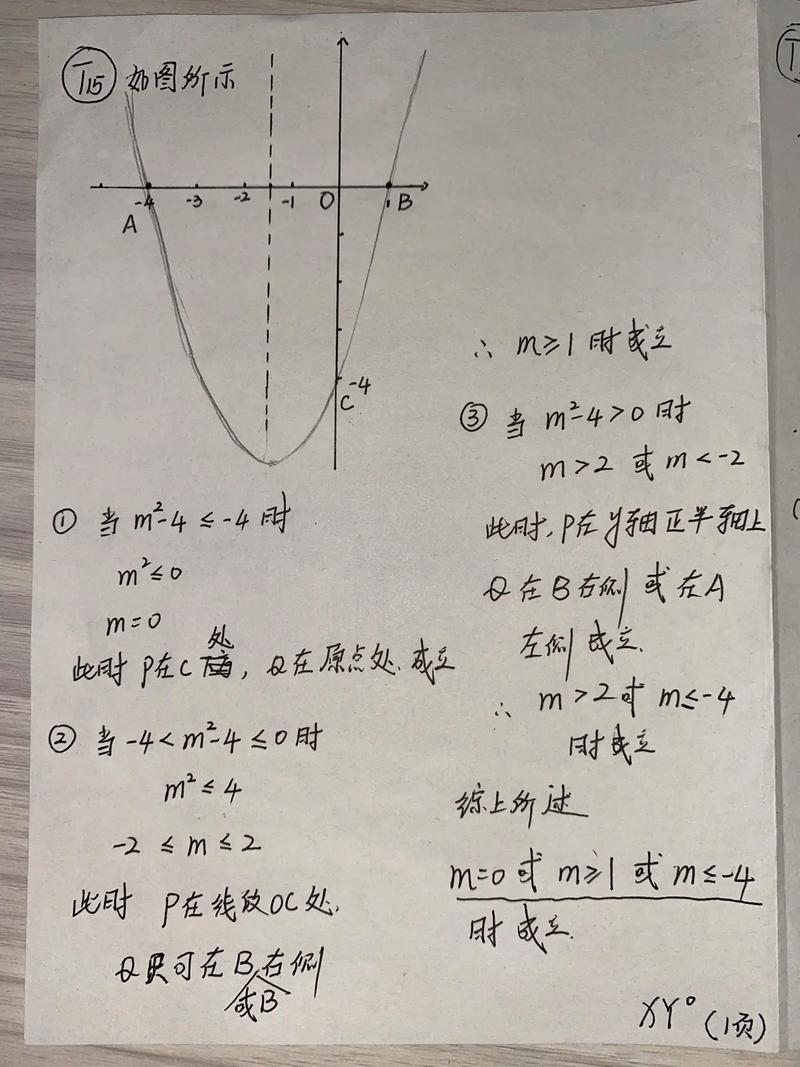 T15 如图所示
-4 -3 -2 -1 O 1 B
A
-4
C
① 当 m²-4 ≤ -4 时
m² ≤ 0
m = 0
处
此时 P在C, Q在原点处. 成立
② 当 -4 < m²-4 ≤ 0 时
m² ≤ 4
-2 ≤ m ≤ 2
此时 P在线段OC处,
Q只可在B右侧
或B
∴ m ≥ 1 时成立
③ 当 m²-4 > 0 时
m > 2 或 m < -2
此时, P在y轴正半轴上
Q在B右侧 或在A
左侧 成立.
∴ m > 2 或 m ≤ -4
时成立
综上所述
m=0 或 m≥1 或 m≤-4
时成立.
XY° (1页)